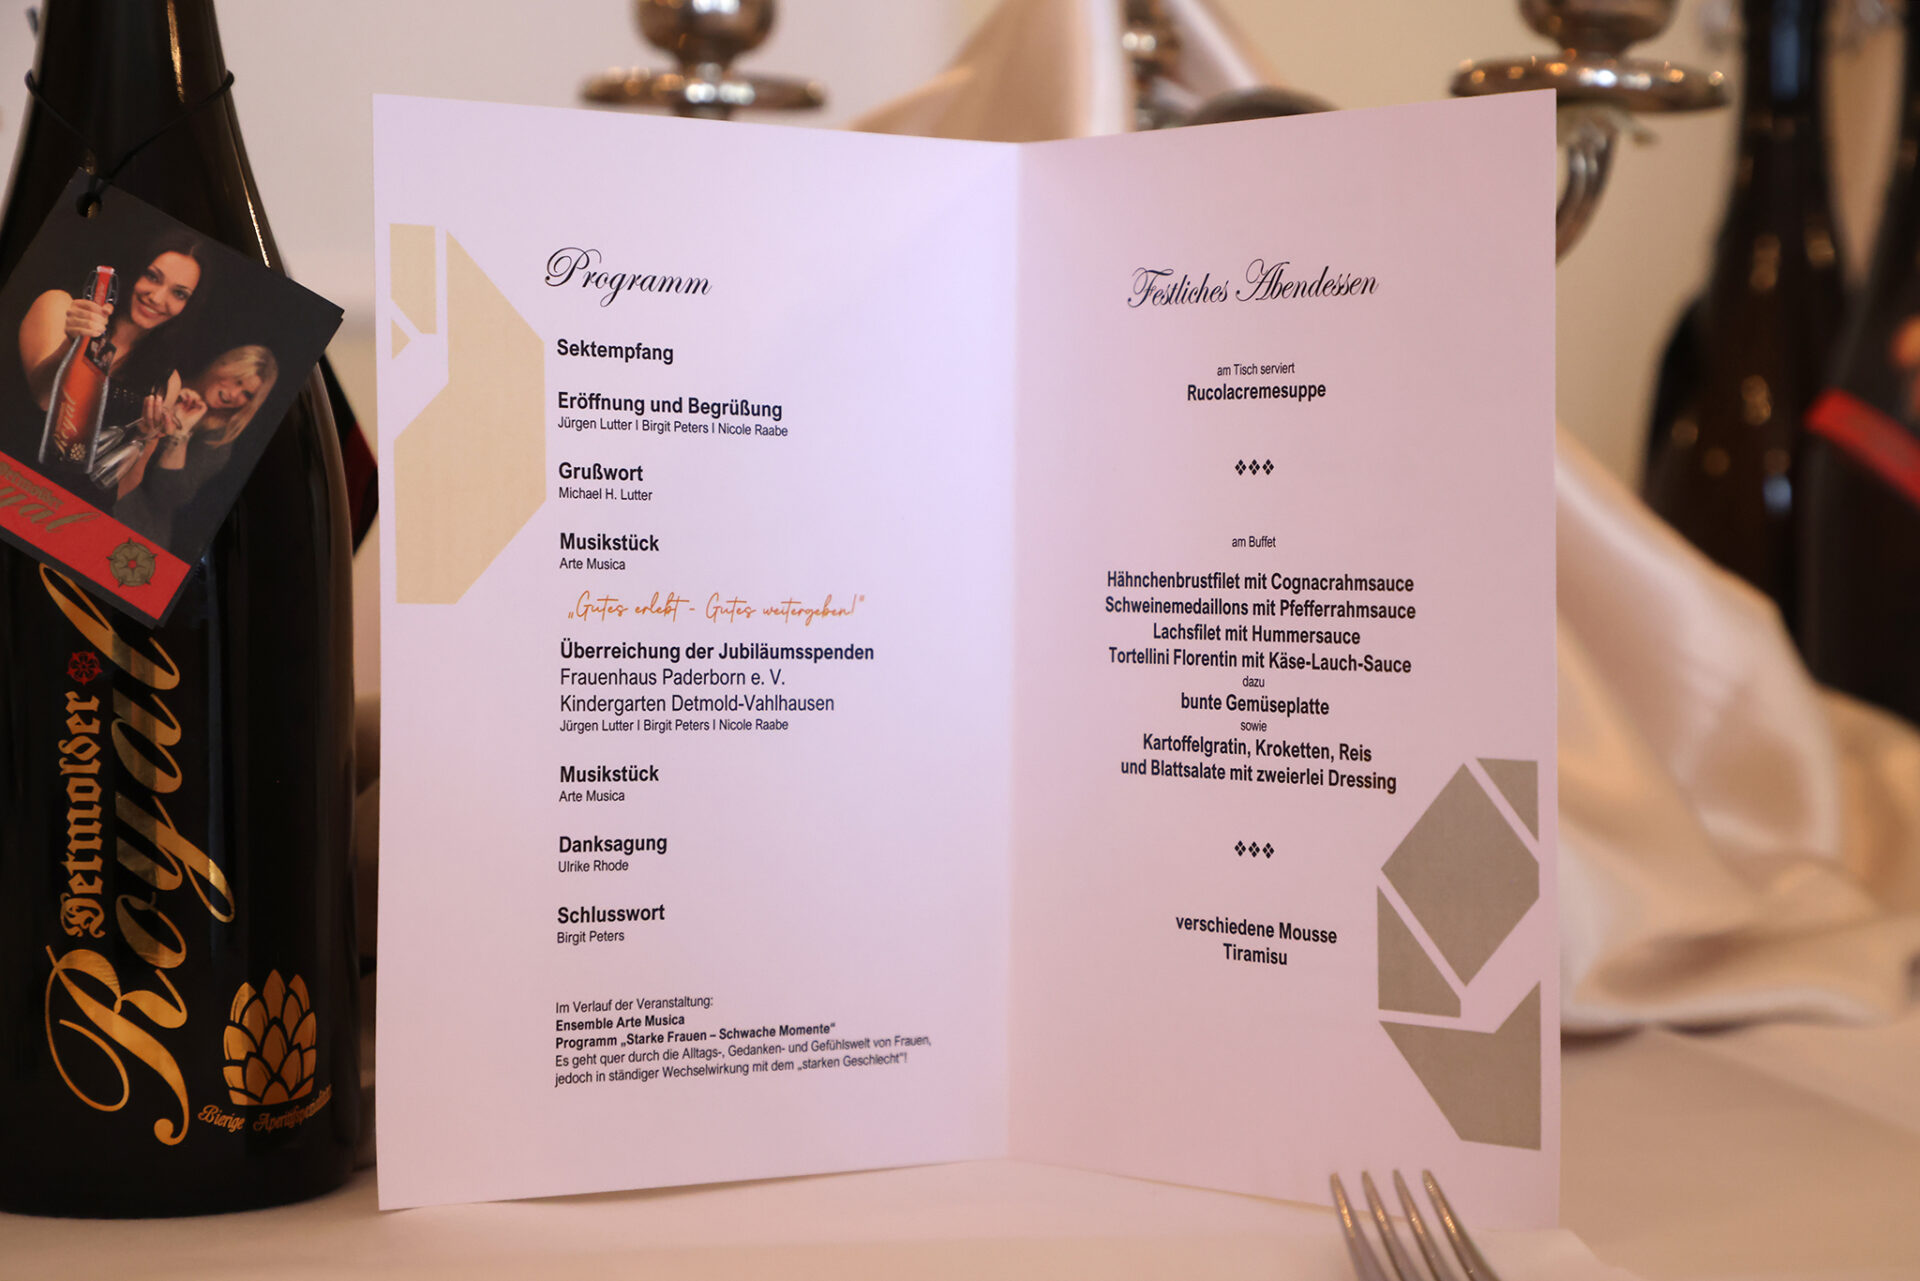 Programm
Sektempfang
Eröffnung und Begrüßung
Jürgen Lutter I Birgit Peters I Nicole Raabe
Grußwort
Michael H. Lutter
Musikstück
Arte Musica
„Gutes erlebt - Gutes weitergeben!"
Überreichung der Jubiläumsspenden
Frauenhaus Paderborn e. V.
Kindergarten Detmold-Vahlhausen
Jürgen Lutter I Birgit Peters I Nicole Raabe
Musikstück
Arte Musica
Danksagung
Ulrike Rhode
Schlusswort
Birgit Peters
Im Verlauf der Veranstaltung:
Ensemble Arte Musica
Programm „Starke Frauen – Schwache Momente“
Es geht quer durch die Alltags-, Gedanken- und Gefühlswelt von Frauen,
jedoch in ständiger Wechselwirkung mit dem „starken Geschlecht“!
Festliches Abendessen
am Tisch serviert
Rucolacremesuppe
am Buffet
Hähnchenbrustfilet mit Cognacrahmsauce
Schweinemedaillons mit Pfefferrahmsauce
Lachsfilet mit Hummersauce
Tortellini Florentin mit Käse-Lauch-Sauce
dazu
bunte Gemüseplatte
sowie
Kartoffelgratin, Kroketten, Reis
und Blattsalate mit zweierlei Dressing
verschiedene Mousse
Tiramisu
Detmolder
Royal
Bierige Aperitifspezialität